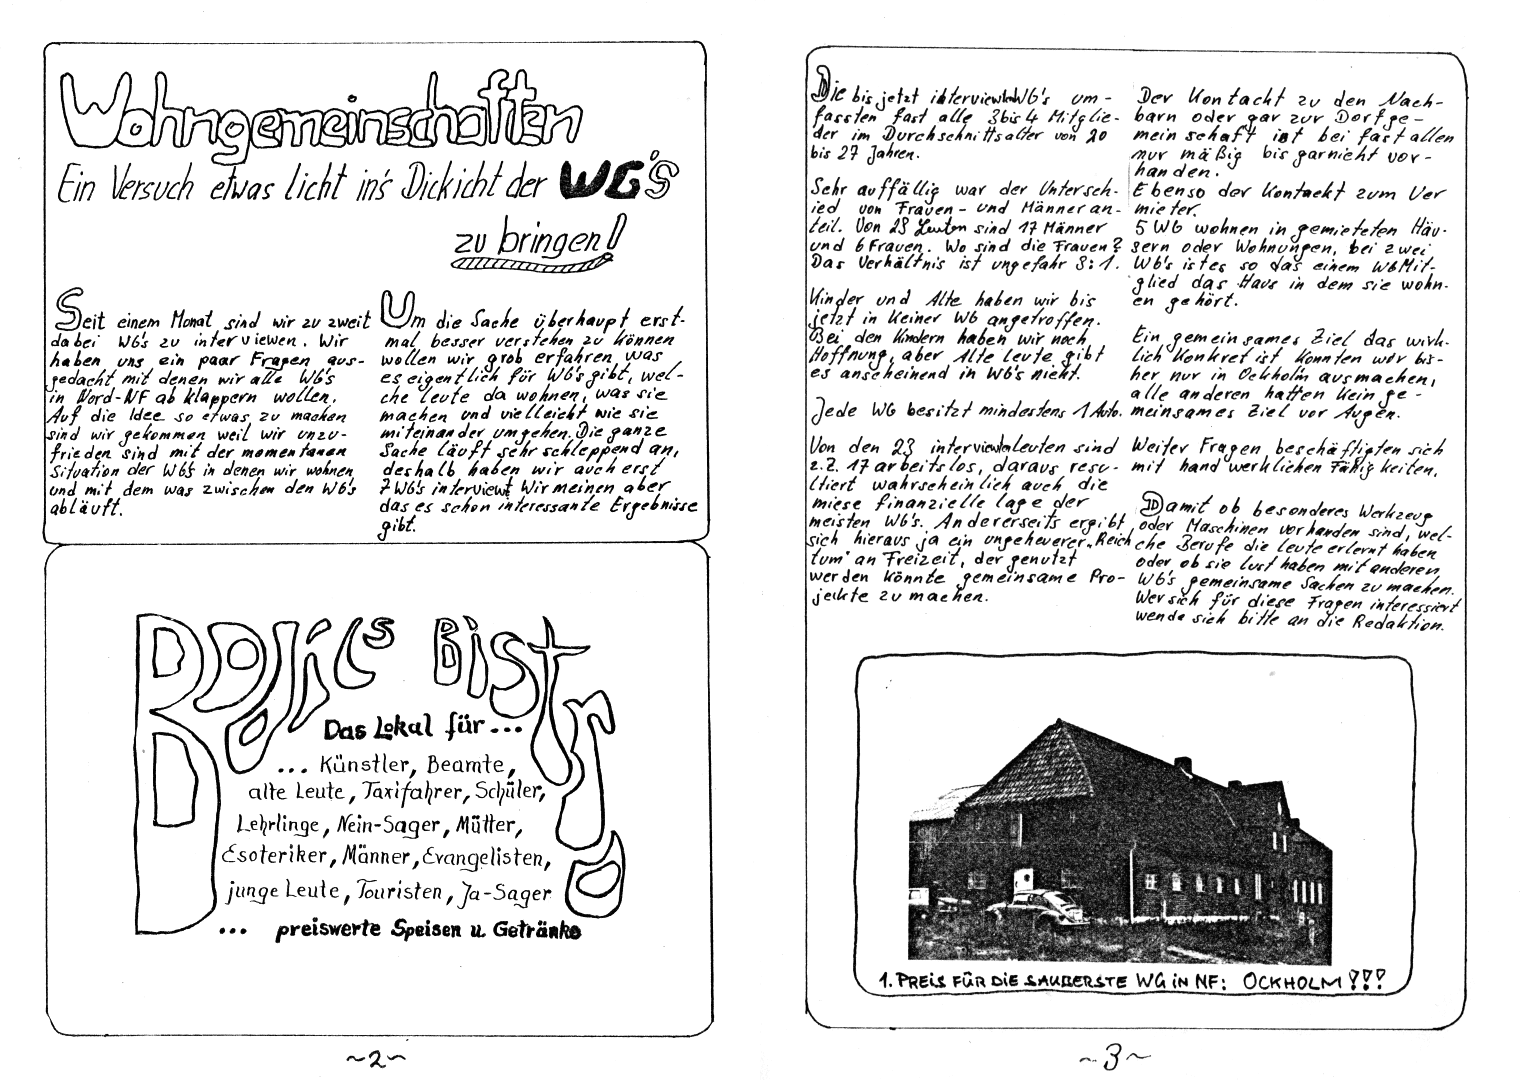 Wohngemeinschaften
Ein Versuch etwas licht in's Dickicht der WG'S
zu bringen!
Seit einem Monat sind wir zu zweit
dabei WG's zu interviewen. Wir
haben uns ein paar Fragen aus-
gedacht mit denen wir alle WG's
in Nord-NF ab klappern wollen.
Auf die Idee so etwas zu machen
sind wir gekommen weil wir unzu-
frieden sind mit der momentanen
Situation der WG's in denen wir wohnen
und mit dem was zwischen den WG's
abläuft.
Um die Sache überhaupt erst-
mal besser verstehen zu können
wollen wir grob erfahren was
es eigentlich für WG's gibt, wel-
che leute da wohnen, was sie
machen und vielleicht wie sie
miteinander umgehen. Die ganze
Sache läuft sehr schleppend an,
deshalb haben wir auch erst
7 WG's interviewt Wir meinen aber
das es schon interessante Ergebnisse
gibt.
Bistro
Das Lokal für...
... Künstler, Beamte,
alte Leute, Taxifahrer, Schüler,
Lehrlinge, Nein-Sager, Mütter,
Esoteriker, Männer, Evangelisten,
junge Leute, Touristen, Ja-Sager
... preiswerte Speisen u. Getränke
~2~
Die bis jetzt interviewten WG's um-
fassten fast alle 3 bis 4 Mitglie-
der im Durchschnittsalter von 20
bis 27 Jahren.
Sehr auffällig war der Untersch-
ied von Frauen- und Männeran-
teil. Von 23 Leuten sind 17 Männer
und 6 Frauen. Wo sind die Frauen?
Das Verhältnis ist ungefahr 3:1.
Kinder und Alte haben wir bis
jetzt in keiner WG angetroffen.
Bei den Kindern haben wir noch
Hoffnung, aber Alte leute gibt
es anscheinend in WG's nicht.
Jede WG besitzt mindestens 1 Auto.
Von den 23 interviewtenleuten sind
z.Z. 17 arbeitslos, daraus resu-
ltiert wahrscheinlich auch die
miese finanzielle lage der
meisten WG's. Andererseits ergibt
sich hieraus ja ein ungeheuerer „Reich
tum" an Freizeit, der genutzt
werden könnte gemeinsame Pro-
jeckte zu machen.
Der Kontackt zu den Nach-
barn oder gar zur Dorfge-
meinschaft ist bei fast allen
nur mäßig bis garnicht vor-
handen.
Ebenso der Kontackt zum Ver
mieter.
5 WG wohnen in gemieteten Häu-
sern oder Wohnungen, bei zwei
WG's ist es so das einem WG Mit-
glied das Haus in dem sie wohn-
en gehört.
Ein gemeinsames Ziel das wirk-
lich konkret ist konnten wir bis-
her nur in Ockholm ausmachen,
alle anderen hatten kein ge-
meinsames Ziel vor Augen.
Weiter Fragen beschäftigten sich
mit handwerklichen Fähigkeiten.
Damit ob besonderes Werkzeug
oder Maschinen vorhanden sind, wel-
che Berufe die leute erlernt haben
oder ob sie lust haben mit anderen
WG's gemeinsame Sachen zu machen.
Wer sich für diese Fragen interessiert
wende sich bitte an die Redaktion.
1. PREIS FÜR DIE SAUBERSTE WG IN NF: OCKHOLM!!!
~3~